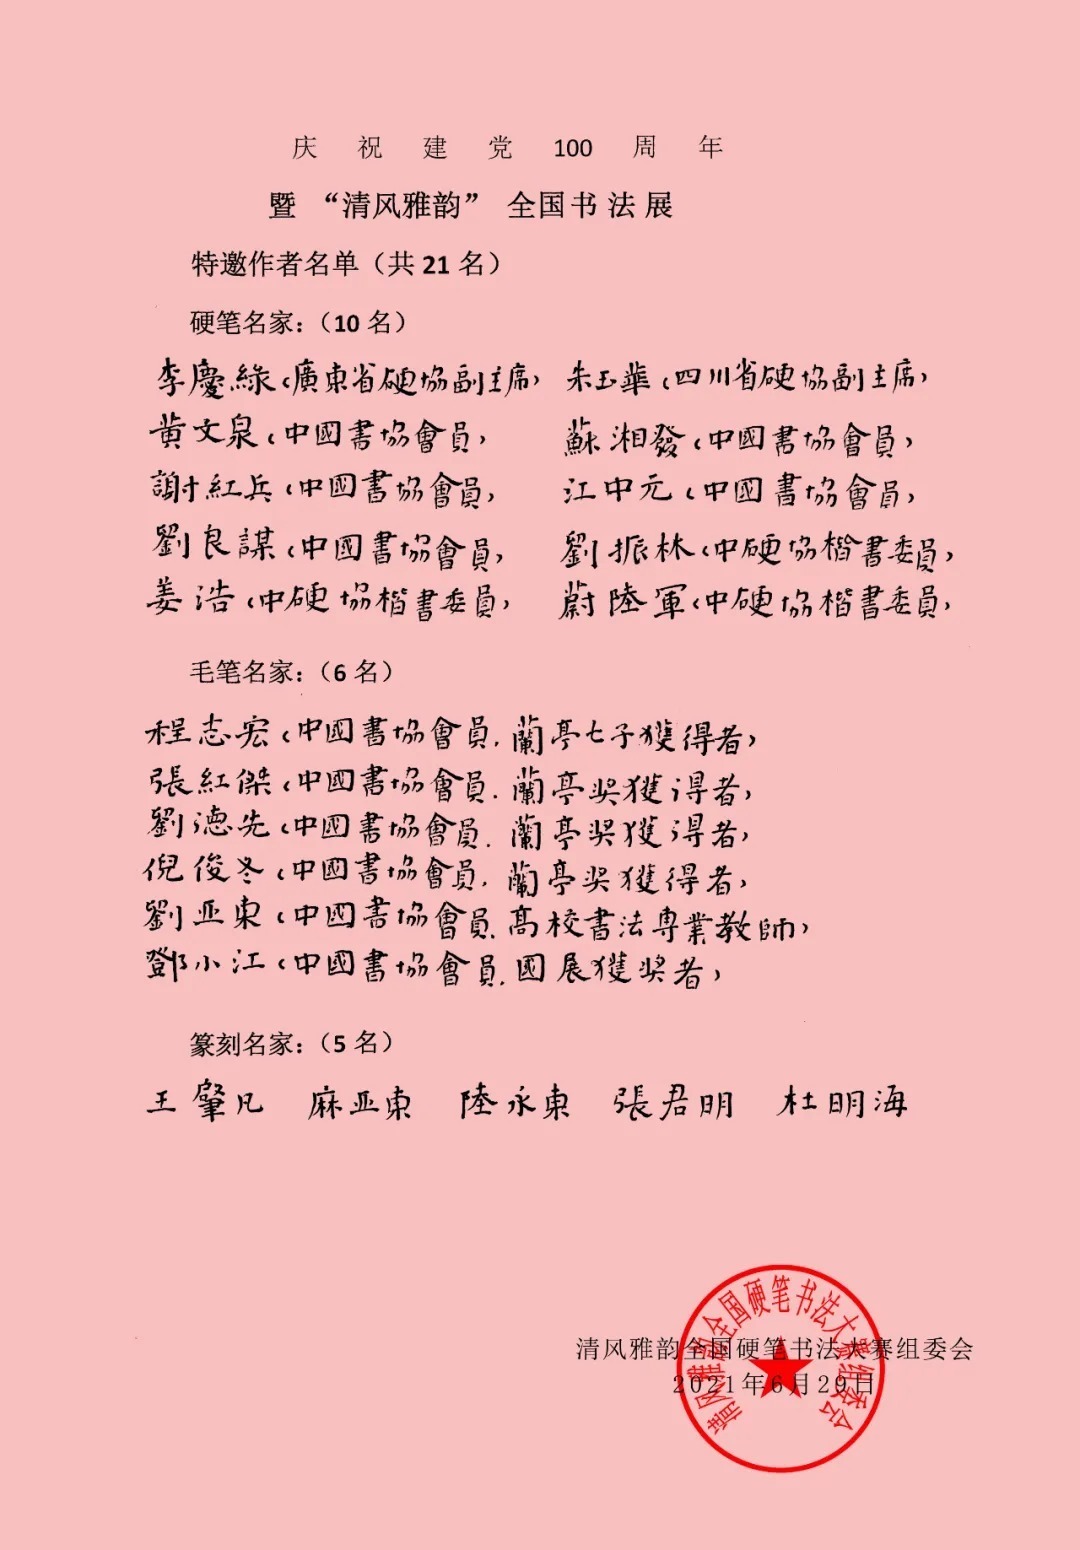 庆祝建党100周年
暨“清风雅韵”全国书法展
特邀作者名单（共21名）
硬笔名家：（10名）
李慶綠（廣東省硬協副主席） 朱玉華（四川省硬協副主席）
黄文泉（中國書協會員） 蘇湘發（中國書協會員）
謝紅兵（中国書協會員） 江中元（中國書協會員）
劉良謀（中國書協會員） 劉振林（中硬協楷書委員）
姜浩（中硬協楷書委員） 蔚陸軍（中硬協楷書委員）
毛笔名家：（6名）
程志宏（中國書協會員.蘭亭七子獲得者）
張紅傑（中國書協會員.蘭亭奖獲得者）
劉德先（中國書協會員.蘭亭奖獲得者）
倪俊冬（中國書協會員.蘭亭奖獲得者）
劉亚東（中國書協會員.高校書法專業教師）
鄧小江（中國書協會員.國展獲奖者）
篆刻名家：（5名）
王肇凡 麻亚東 陸永東 張君明 杜明海
清风雅韵全国硬笔书法大赛组委会
2021年6月29日
清风雅韵全国硬笔书法大赛组委会